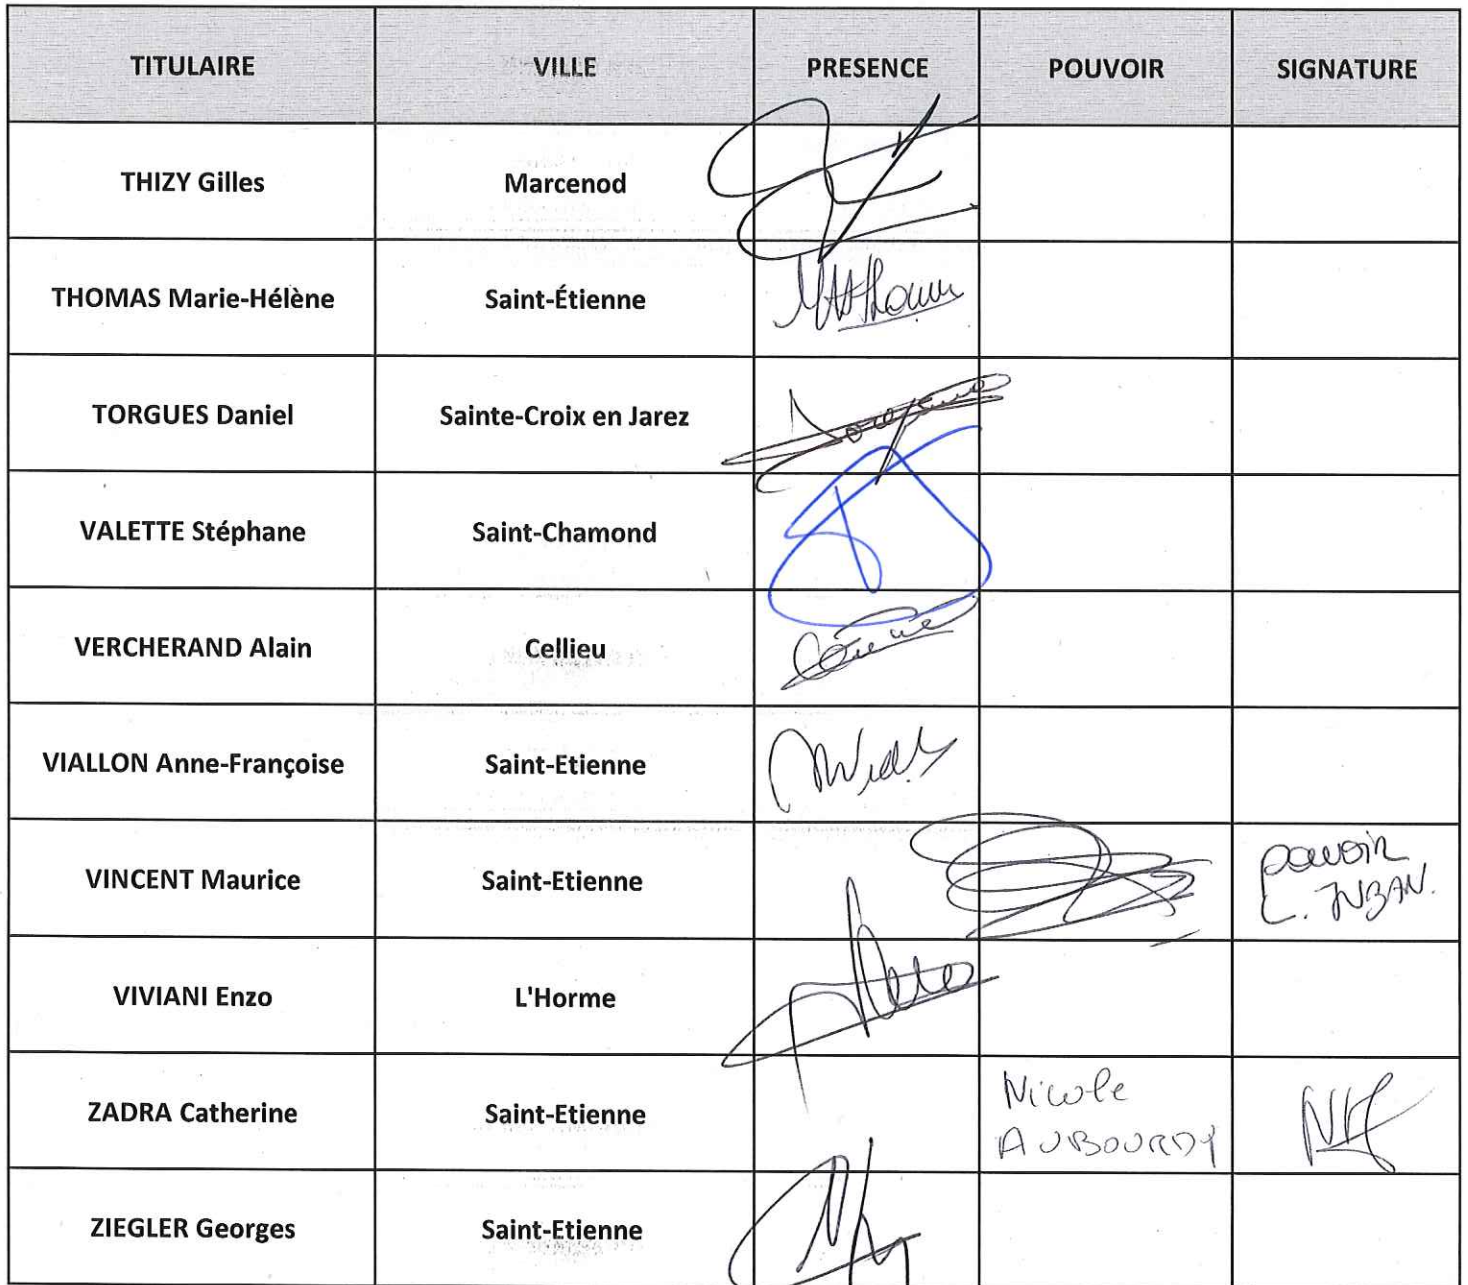 TITULAIRE VILLE PRESENCE POUVOIR SIGNATURE
THIZY Gilles Marcenod
THOMAS Marie-Hélène Saint-Étienne
TORGUES Daniel Sainte-Croix en Jarez
VALETTE Stéphane Saint-Chamond
VERCHERAND Alain Cellieu
VIALLON Anne-Françoise Saint-Etienne
VINCENT Maurice Saint-Etienne pouvoir
L. JUBAN.
VIVIANI Enzo L'Horme
ZADRA Catherine Saint-Etienne Nicole
AUBOURDY
ZIEGLER Georges Saint-Etienne